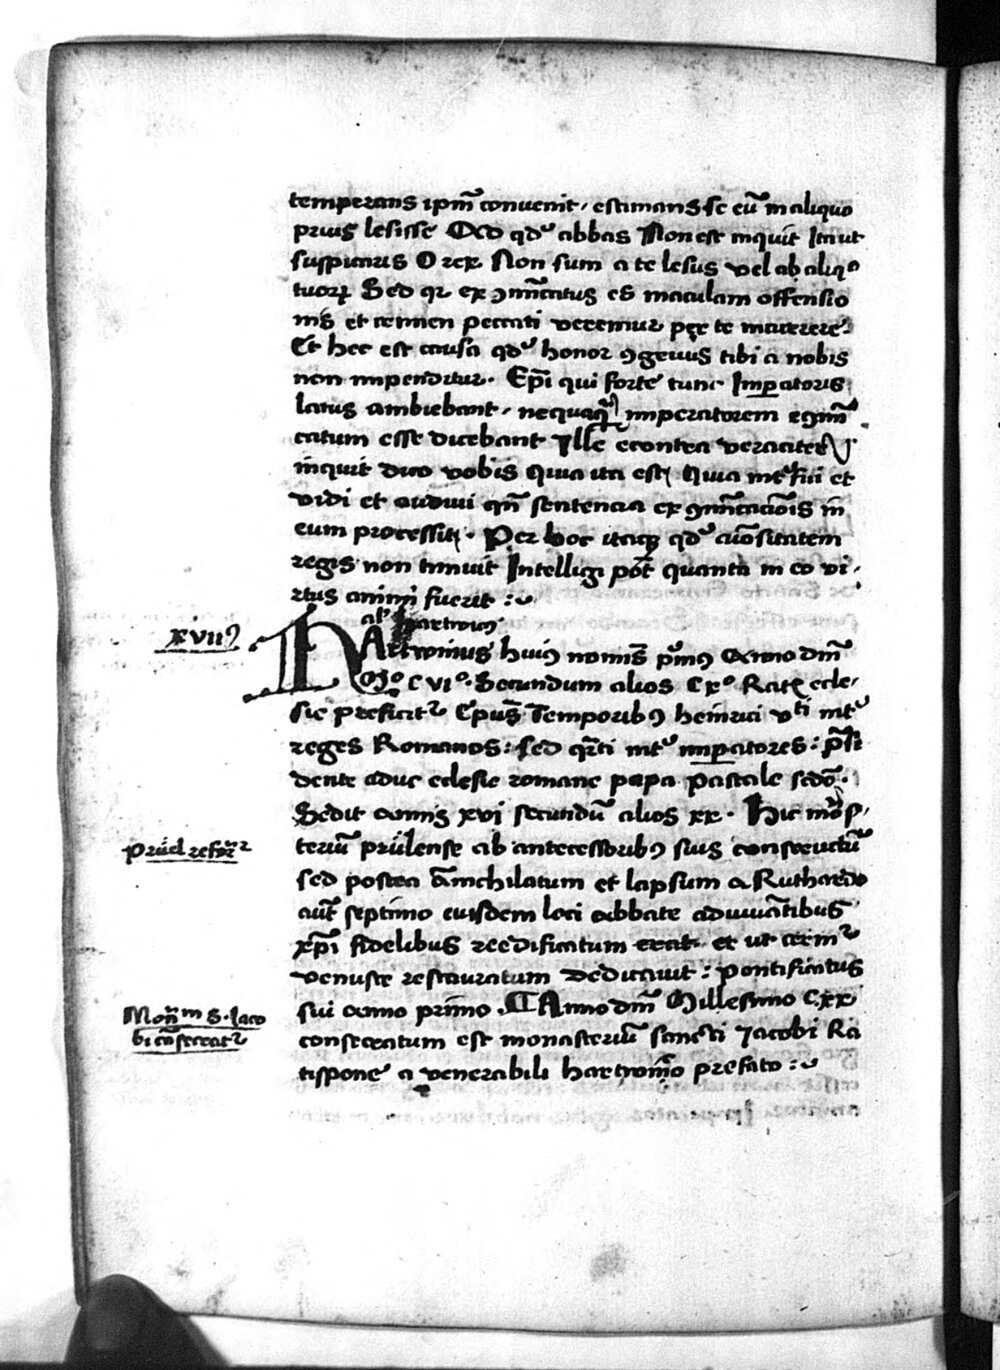 temperans ip̄m conuenit, estimans se eū in aliquo
prius lesisse Cui qd' abbas Non est inquit Ita ut
suspicaris O rex Non sum a te lesus vel ab aliqo
tuoꝝ Sed qr ex ꝯmūicatus es maculam offensio
nis et tamen peccati veremur per te
Et hec est causa qd' honor ꝯgruus tibi a nobis
non impenditur. Ep̄i qui forte tunc Imperatoris
latus ambiebant, nequaq̄ imperatorem exꝯmūi
catum esse dicebant Ille econtra veraciter
inquit dico vobis Quia ita est Quia int'fui et
vidi et audiui qn̄ sentencia ex ꝯmūicacōis in
eum processit. Per hoc itaqꝫ qd' aīositatem
regis non timuit Intelligi pōt quanta in eo vi,
rtus animi fuerit :~
xvii9
al' hartwic9
Hartwinus huiꝰ nomīs pmꝰ Anno dnī
Mo C vIo. Secundum alios Cxo Ratp̄ ecle,
sie preficit' Ep̄us Temporibꝰ heinrici vti int'
reges Romanos: sed qrti int' imperatores: p̄si
dente aduc eclesie romane papa pascale sedo.
Sedit annis xvi secundū alios xx. Hic mōs,
teriū prülense ab antecessoribꝰ suis constructū
sed postea annichilatum et lapsum a Ruthardo
aūt septimo eiusdem loci abbate adiuuātibus
xp̄i fidelibus reedificatum erat. et ut cerni'
venuste restauratum dedicauit: pontificatus
sui anno primo. ¶ Anno dnī Millesimo Cxx
consecratum est monasteriū sancti Jacobi Ra
tispone a venerabili hartwico prefato :~
prüel refor'
Mon'm S. Jaco
bi cōsecrat'